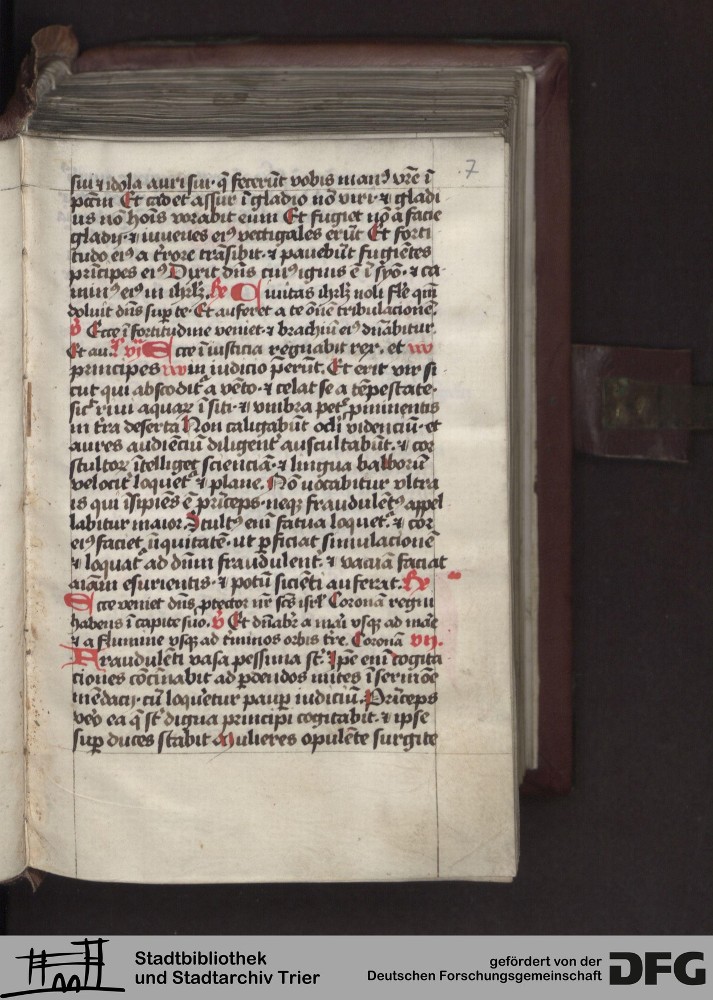 7
sui ⁊ idola auri sui · q̄ fecerūt vobis manꝰ vr̄e ī
pctm̄ Et cadet assur ī gladio nō viri · ⁊ gladi
us nō hoīs vorabit eum Et fugiet nō a facie
gladij · ⁊ iuvenes eiꝰ vectigales erūt Et forti
tudo eiꝰ a t̄rore trāsibit · ⁊ pavebūt fugiētes
prīcipes eiꝰ Dixit dn̄s cuiꝰ ignis ē ī syō · ⁊ ca
minꝰ eiꝰ in ihrlꝫ. Re Civitas ihrlꝫ noli fle qm̄
doluit dn̄s suꝑ te · Et auferet a te ōne͞ tribulacione͞.
v Ecce ī fortitudine veniet · ⁊ brachiū eiꝰ dn̄abitur.
Et au. L vi Ecce ī iusticia regnabit rex. et
principes in iudicio p̄erūt. Et erit vir si
cut qui abscōdit᷑ a vēto · ⁊ celat se a tēpestate ·
sic᷑ rivi aquaꝝ ī siti · ⁊ vmbra pet᷑ p̄minentis
in t̄ra deserta Non caligabūt ocl̄i videnciū · et
aures audiēciū diligent᷑ auscultabūt · ⁊ cor
stultoꝝ ītelliget scienciā · ⁊ lingua balborū
velocit᷑ loquet᷑ ⁊ plane. Nō vocabitur vltra
is qui īsipiēs ē prīceps · neqꝫ fraudulētꝰ appel
labitur maior. Stultꝰ eni͞ fatua loquet᷑ · ⁊ cor
eiꝰ faciet īiquitatē · ut ꝑficiat simulacione͞
⁊ loquat᷑ ad dn̄m fraudulent᷑ · ⁊ vacuā faciat
aīam esurientis · ⁊ potū sicienti auferat. Re
Ecce veniet dn̄s ꝓtector nr̄ sc̄s isrl̄ Coronā regni
habens ī capite suo. v Et dn̄abr̄ a mari vsqꝫ ad mare
⁊ a flumine vsqꝫ ad t̄minos orbis tr̄e. Coronā vij.
Fraudulēti vasa pessima st̄. Ip̄e eni͞ cogita
ciones cōcīnabit ad ꝑdendos mites ī sermōe
mēdacij · cū loquēetur pauꝑ iudiciū. Prīceps
vero ea q̄ st̄ digna principi cogitabit · ⁊ ipse
suꝑ duces stabit Mulieres opulēte surgite
Stadtbibliothek
und Stadtarchiv Trier
gefördert von der
Deutschen Forschungsgemeinschaft DFG